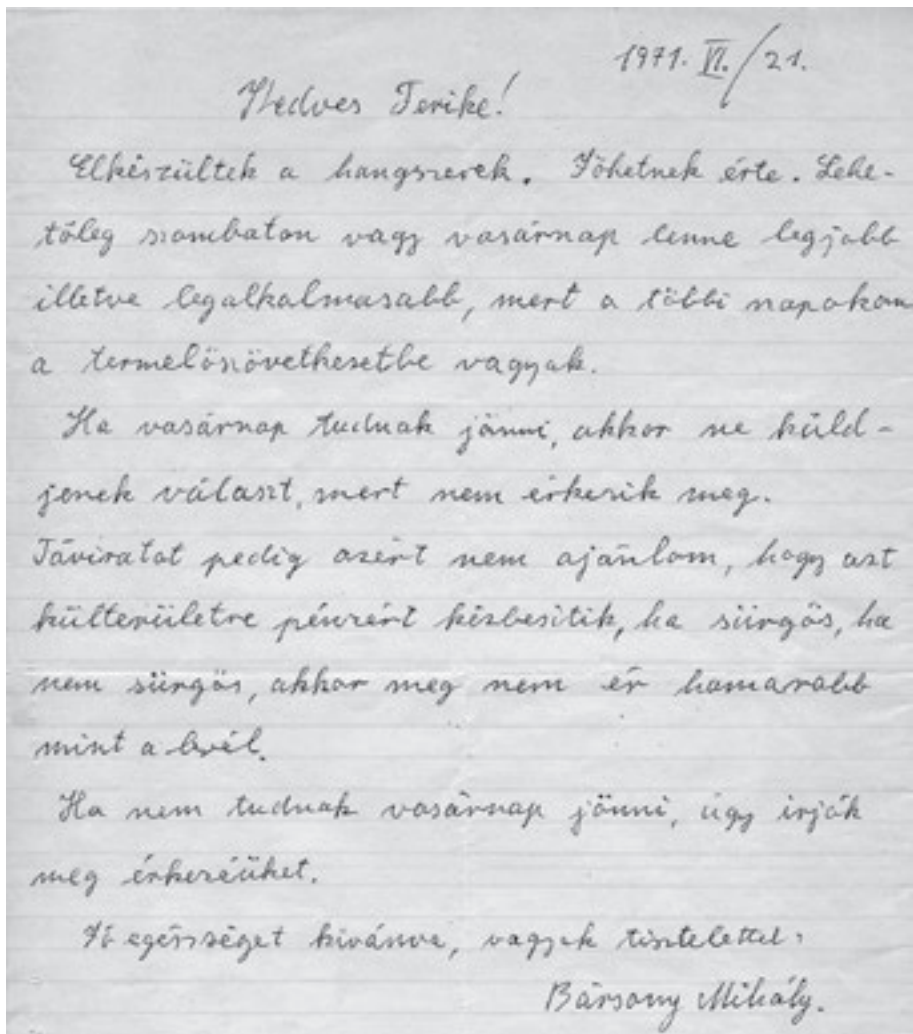 1971. VI./21.
Kedves Terike!
Elkészültek a hangszerek. Jöhetnek érte. Lehe-
tőleg szombaton vagy vasárnap lenne legjobb
illetve legalkalmasabb, mert a többi napokon
a termelőszövetkezetbe vagyok.
Ha vasárnap tudnak jönni, akkor ne küld-
jenek választ, mert nem érkezik meg.
Táviratot pedig azért nem ajánlom, hogy azt
külterületre pénzért kézbesitik, ha sürgős, ha
nem sürgős, akkor meg nem ér hamarabb
mint a levél.
Ha nem tudnak vasárnap jönni, úgy irják
meg érkezésüket.
Jó egészséget kivánva, vagyok tisztelettel:
Bársony Mihály.